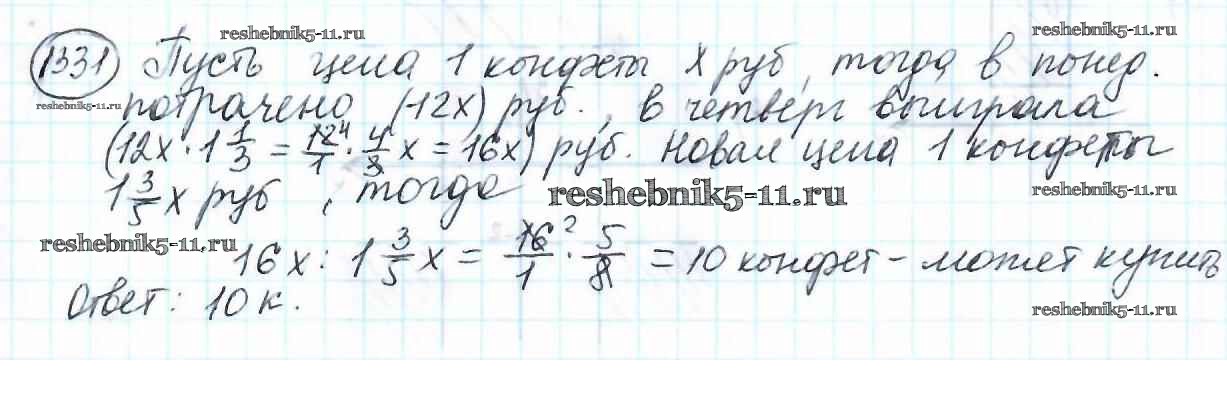 reshebnik5-11.ru
reshebnik5-11.ru
1331 Пусть цена 1 конфеты x руб, тогда в понед.
reshebnik5-11.ru
потрачено (12x) руб., в четверг выиграла
(12x · 1 1/3 = 12/1 · 4/3 x = 16x) руб. Новая цена 1 конфеты
1 3/5 x руб, тогда
reshebnik5-11.ru
reshebnik5-11.ru
reshebnik5-11.ru
16x : 1 3/5 x = 16/1 · 5/8 = 10 конфет – может купить
Ответ: 10 к.
reshebnik5-11.ru